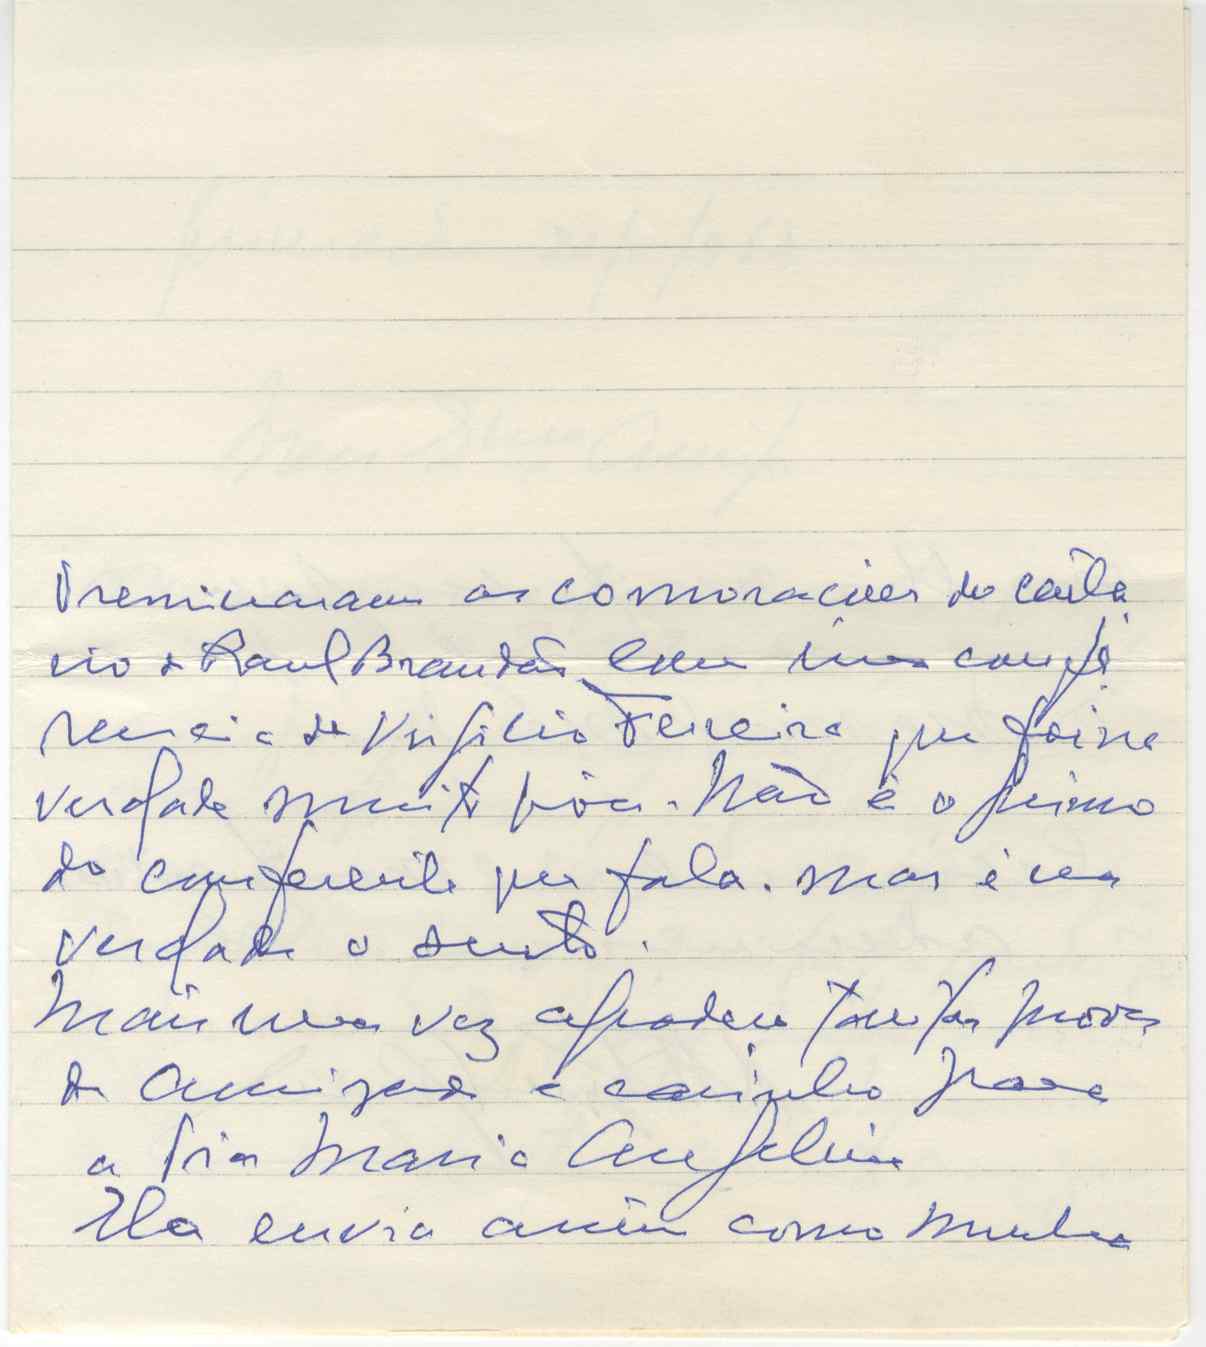 Treminaram as comoraciões do cente
rio de Raul Brandão com uma confe
rencia de Virgilio Ferreira que foi na
verdade muito boa. Não é o primo
do conferente que fala. mas é na
verdade o
Mais uma vez agradeço tantas provas
de Amizade e carinho para
a tia Maria Angelina
Ela envia assim como minha